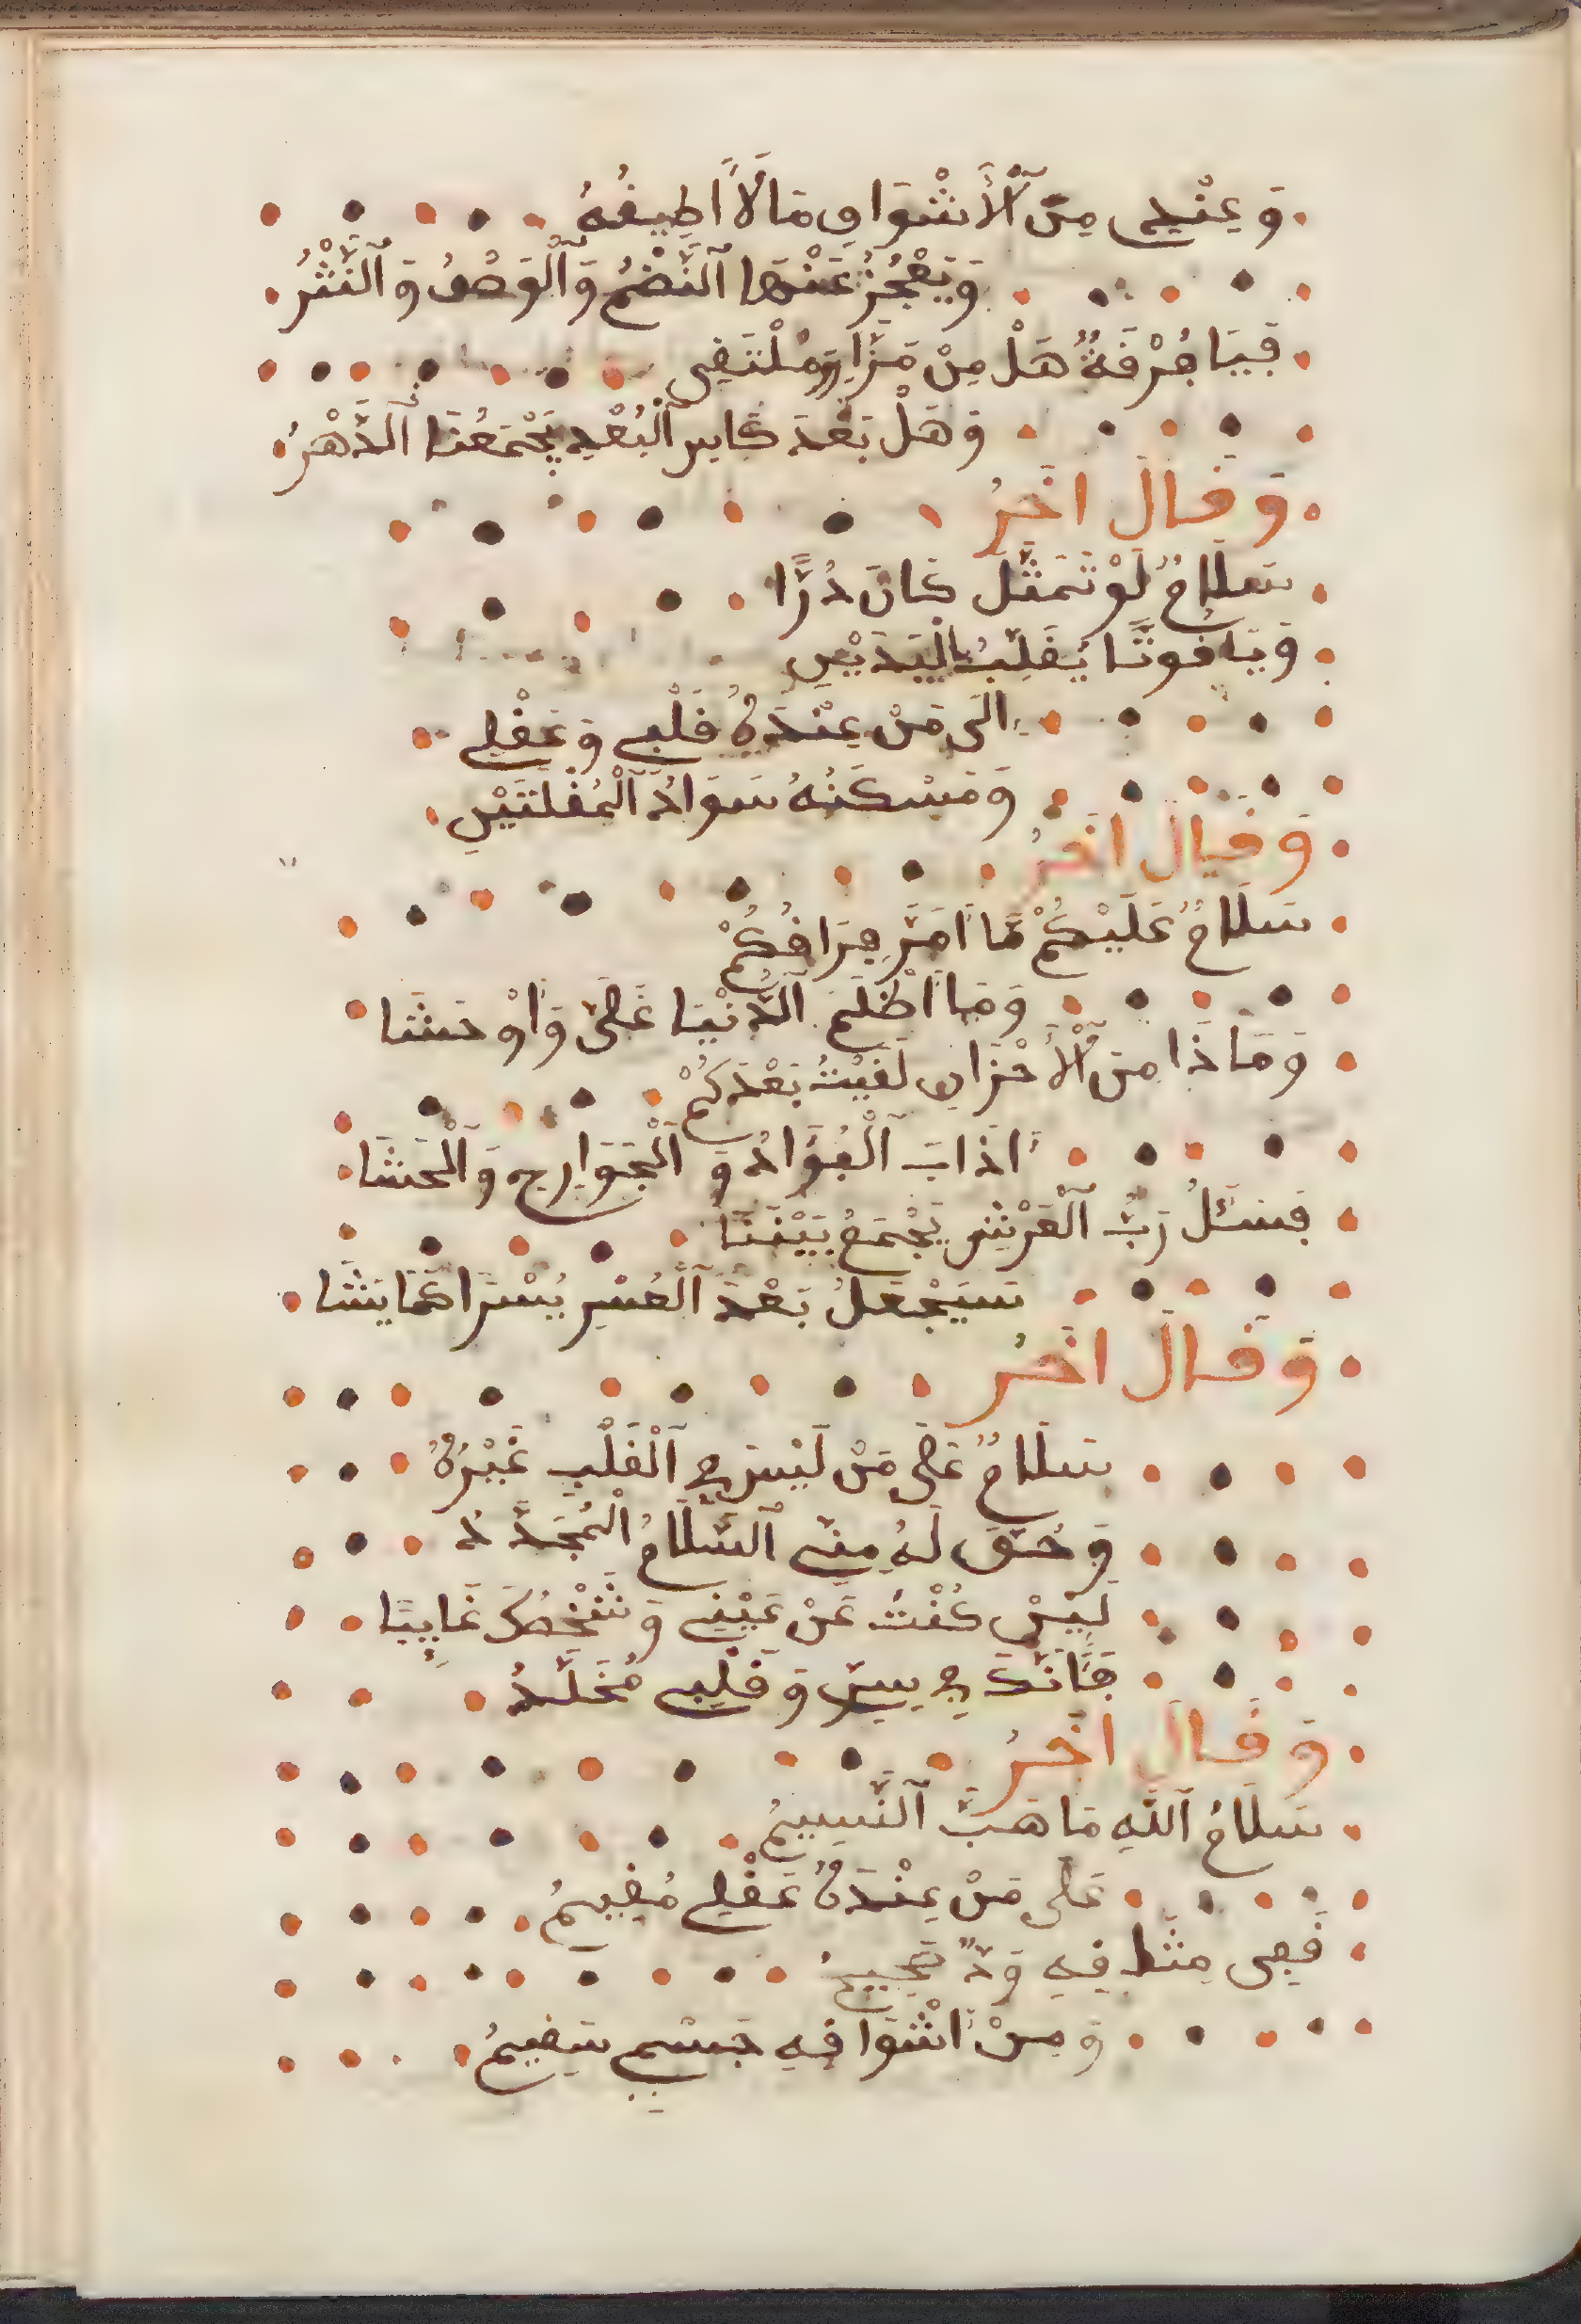 وَ عِنْدِي مِنَ ٱلْأَشْوَاقِ مَا لَا أُطِيقُهُ
وَيَعْجُزُ عَنْهَا ٱلنَّضْمُ وَ ٱلْوَصْفُ وَ ٱلنَّثْرُ
فَيَا فُرْقَةً هَلْ مِنْ مَزَارٍ وَمُلْتَقِى
وَ هَلْ بَعْدَ كَاسِ ٱلْبُعْدِ يَجْمَعُنَا ٱلدَّهْرُ
وَ قَالَ اخَرُ
سَلَامٌ لَوْ تَمَثَّلَ كَانَ دُرًّا
وَ يَاقُوتًا يُقَلَّبُ بِالْيَدَيْنِ
الَى مَنْ عِنْدَهُ قَلْبِي وَ عَقْلِي
وَ مَسْكَنُهُ سَوَادُ ٱلْمُقْلَتَيْنِ
وَ قَالَ اخَرُ
سَلَامٌ عَلَيْكُمْ مَا اَمَرَّ فِرَاقُكُمْ
وَ مَا اَظْلَمَ ٱلدُّنْيَا عَلَىَّ وَ اَوْحَشَا
وَ مَاذَا مِنَ ٱلْأَحْزَانِ لَقِيْتُ بَعْدَكُمْ
اَذَابَ ٱلْفُؤَادُ وَ ٱلْجَوَارِحِ وَ ٱلْحَشَا
فَسَئَلُ رَبُّ ٱلْعَرْشِ يَجْمَعُ بَيْنَنَا
سَيَجْعَلُ بَعْدَ ٱلْعُسْرِ يُسْرًا كَمَا يَشَا
وَ قَالَ اخَرُ
سَلَامٌ عَلَى مَنْ لَيْسَ فِي ٱلْقَلْبِ غَيْرُهُ
وَ حُقَّ لَهُ مِنِّي ٱلسَّلَامُ الْمُجَدَّدُ
لَيِنْ كُنْتَ عَنْ عَيْنِي وَ شَخْصُكَ غَايِبًا
فَاَنَّكَ فِي سِرِّ وَ قَلْبِي مُخَلَّدُ
وَ قَالَ اخَرُ
سَلَامُ ٱللَّهِ مَا هَبَّ ٱلنَّسِيمُ
عَلَى مَنْ عِنْدَهُ عَقْلِي مُقِيمُ
فَفِى مِثْلِ فِيهِ وَدٌّ
وَ مِنْ اَشْوَاقِهِ جِسْمِي سَقِيمُ